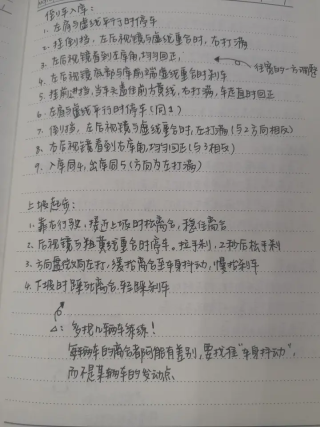 倒车入库:
1. 左肩与虚线平行时停车
2. 挂倒挡，左后视镜与虚线重合时，右打满
3. 左后视镜看到左库角，均可回正，
往宽的一方调整
4. 左后视镜底部与库前端虚线重合时刹车
5. 挂前进挡，当车头盖住前方黄线，右打满，车走直时回正
6. 左肩与虚线平行时停车(同1)
7. 倒挡，左后视镜与虚线重合时，左打满(与2方向相反)
8. 右后视镜看到右库角，均可回正(与3相反)
9. 入库同4，出库同5(方向为左打满)
上坡起步:
1. 靠右行驶，接近上坡时松离合，稳住离合
2. 后视镜与粗黄线重合时停车。拉手刹，2秒后松手刹
3. 方向盘微向左打，缓抬离合至车身抖动，慢抬刹车
4. 下坡时踩死离合，轻踩刹车
△: 多换几辆车练练!
每辆车的离合都可能有差别，要找准"车身抖动"，
而不是某辆车的发动点